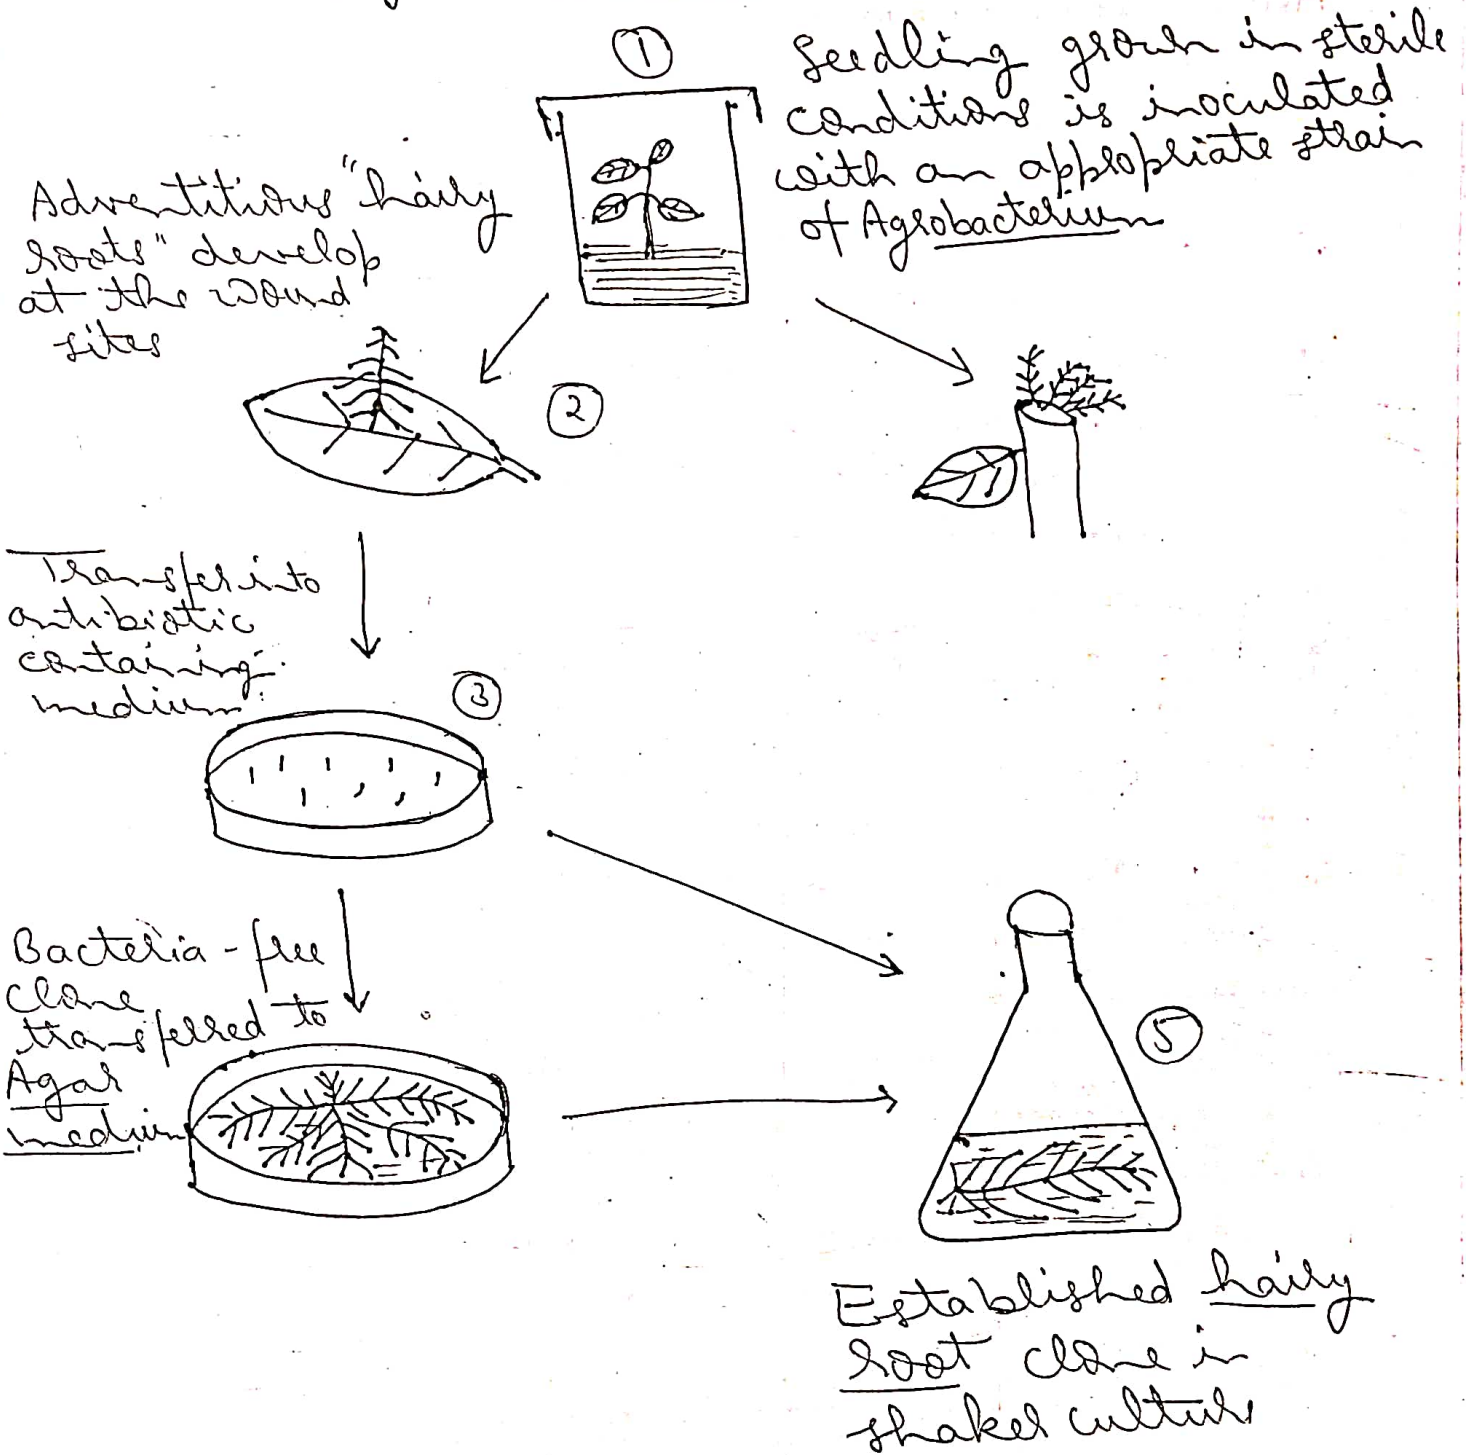 1
Seedling grown in sterile
conditions is inoculated
with an appropriate strain
of Agrobacterium
Adventitious "hairy
roots" develop
at the wound
sites
2
Transfer into
antibiotic
containing
medium
3
Bacteria-free
clone
transferred to
Agar
medium
5
Established hairy
root clone in
shaker culture